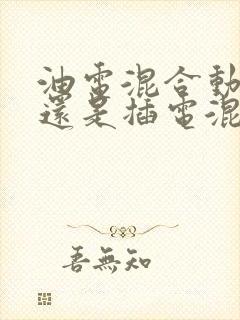 油電混合動
還是插電混
吾無知